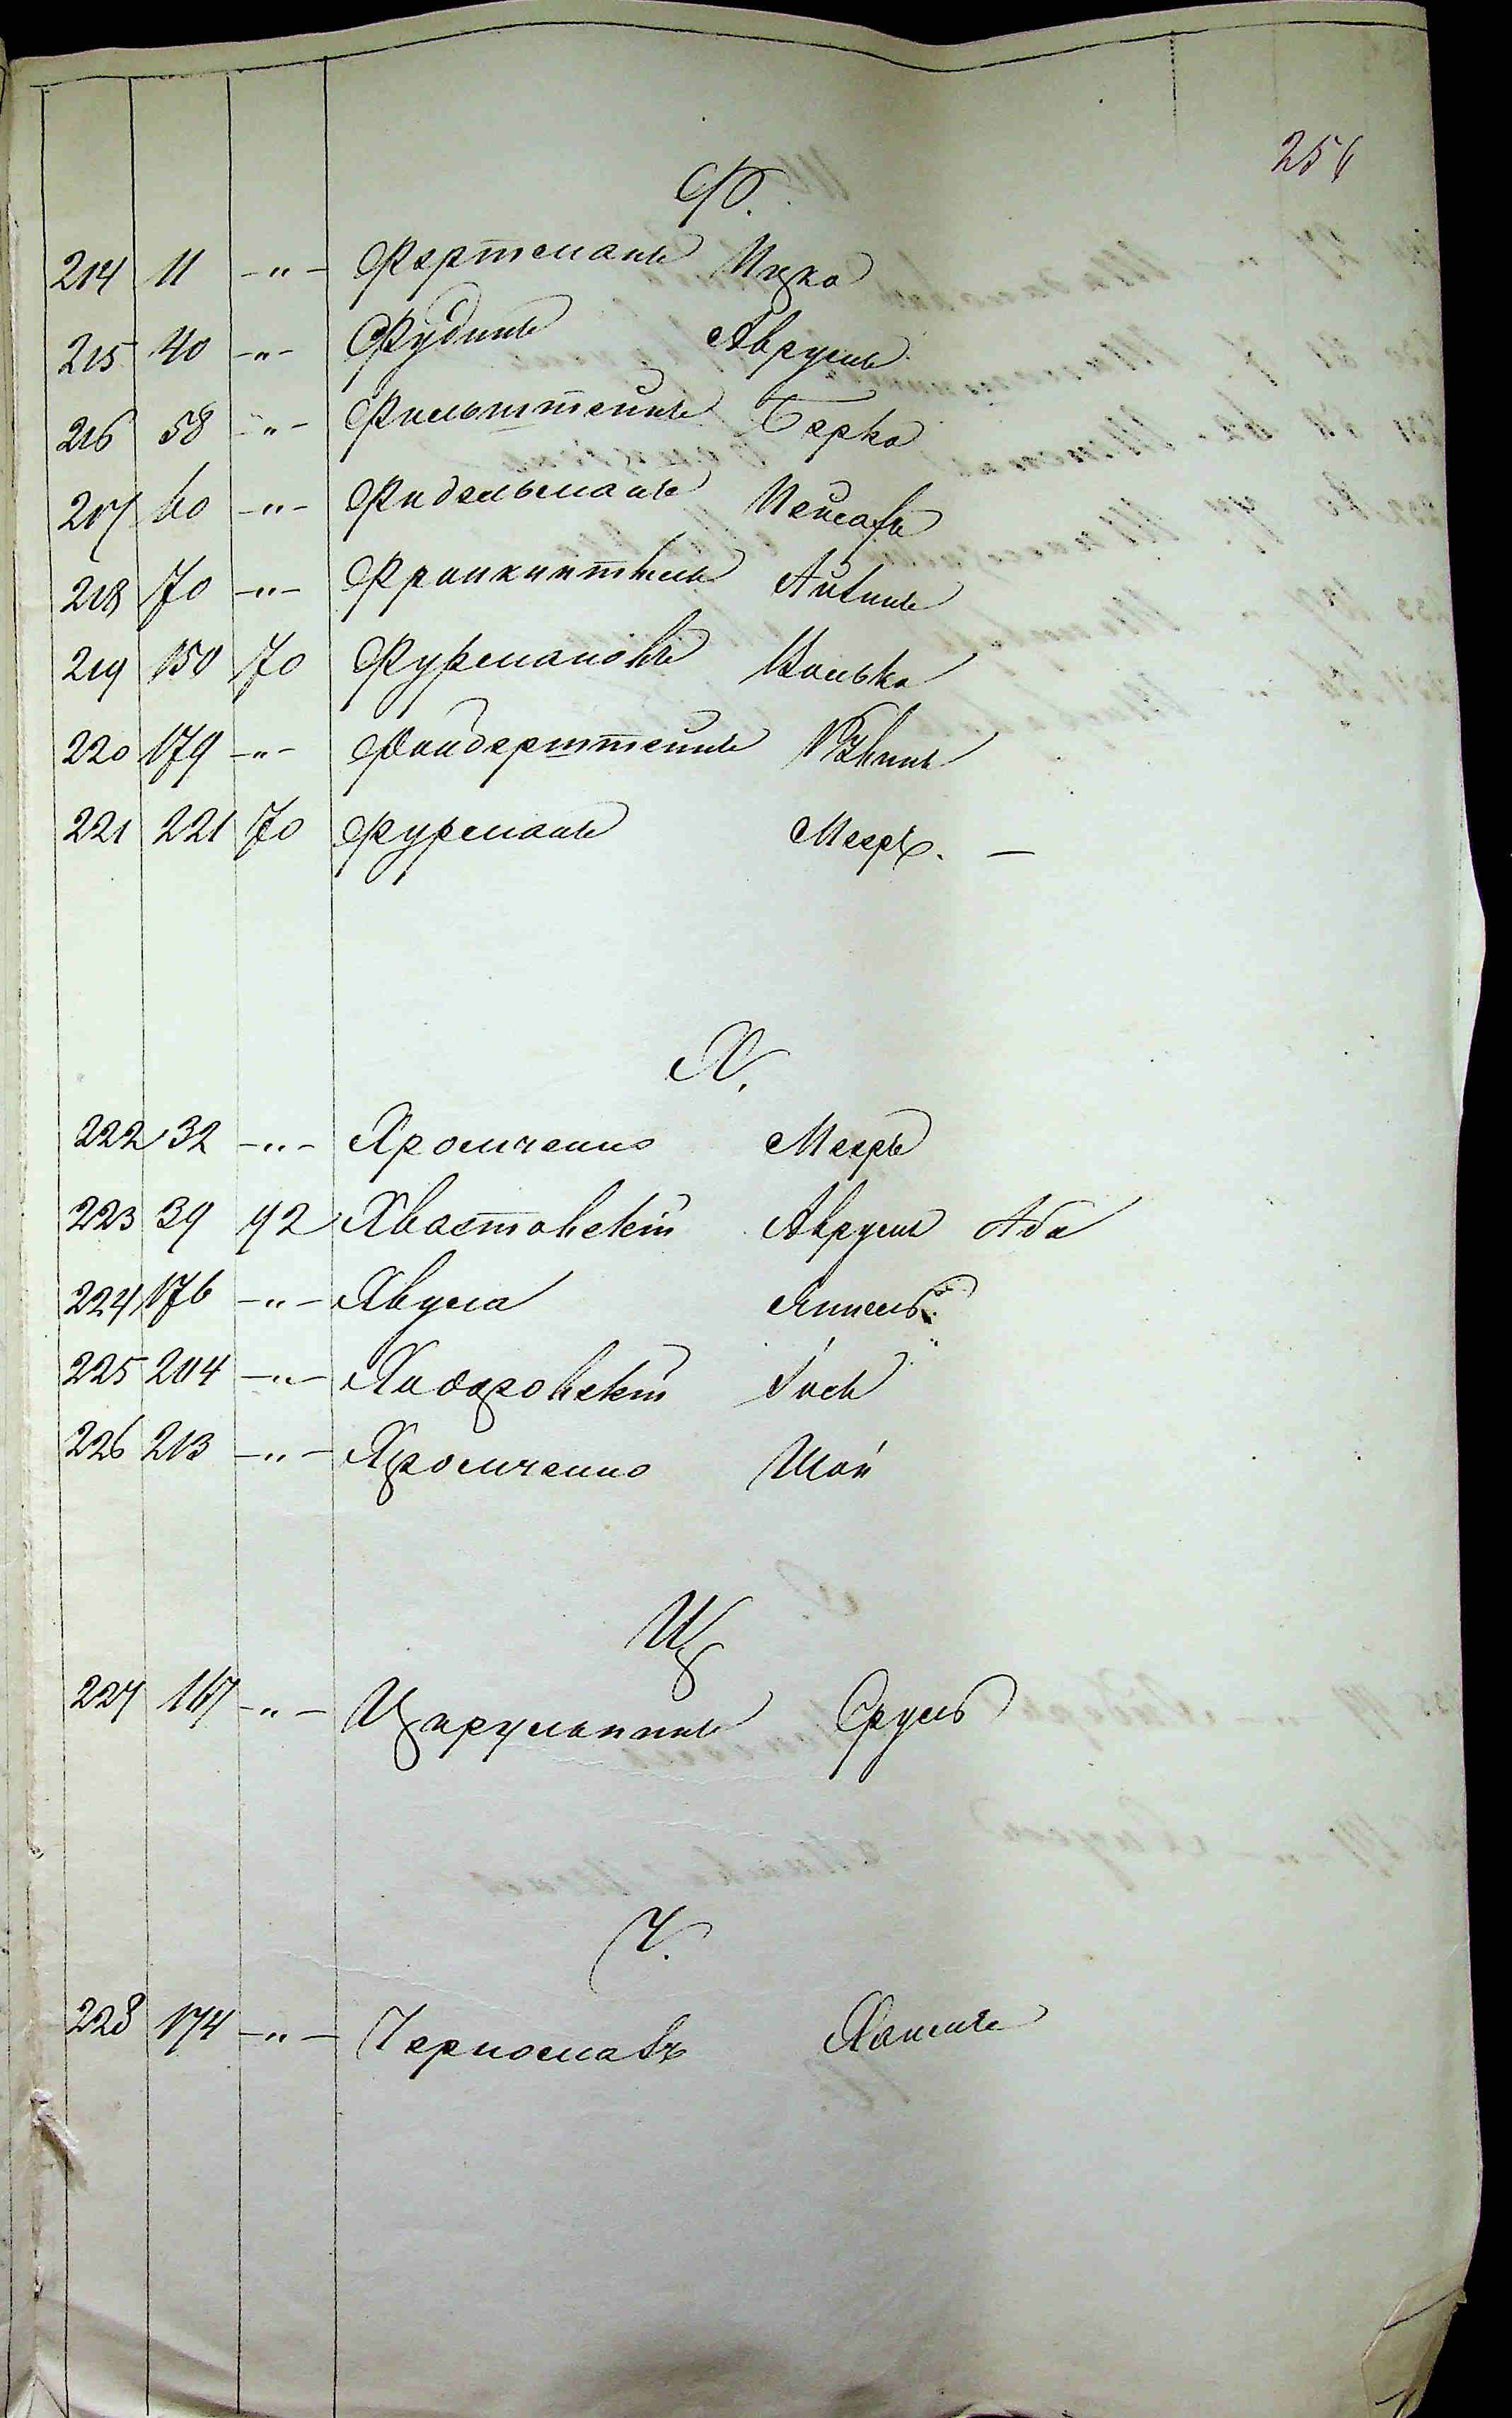 256
Ф.
214 11 -"- Фертманъ Ицко
215 40 -"- Фудимъ Аврумъ
216 58 -"- Фильштейнъ Берко
217 60 -"- Фидельманъ Пейсахъ
218 70 -"- Айзикъ
219 150 70 Фурмановъ Иолька
220 179 -"- Файдерштейнъ Рувинъ
221 221 70 Фурманъ Мееръ. —
Х.
222 32 -"- Хромченко Мееръ
223 39 92 Хвастовскій Аврумъ Аба
224 176 -"- Хвула Янкель
225 204 -"- Ходоровскій Іось
226 213 -"- Хромченко Шая
Ц
227 167 -"- Цирульникъ Сруль
Ч.
228 174 -"- Черномазъ Хаимъ